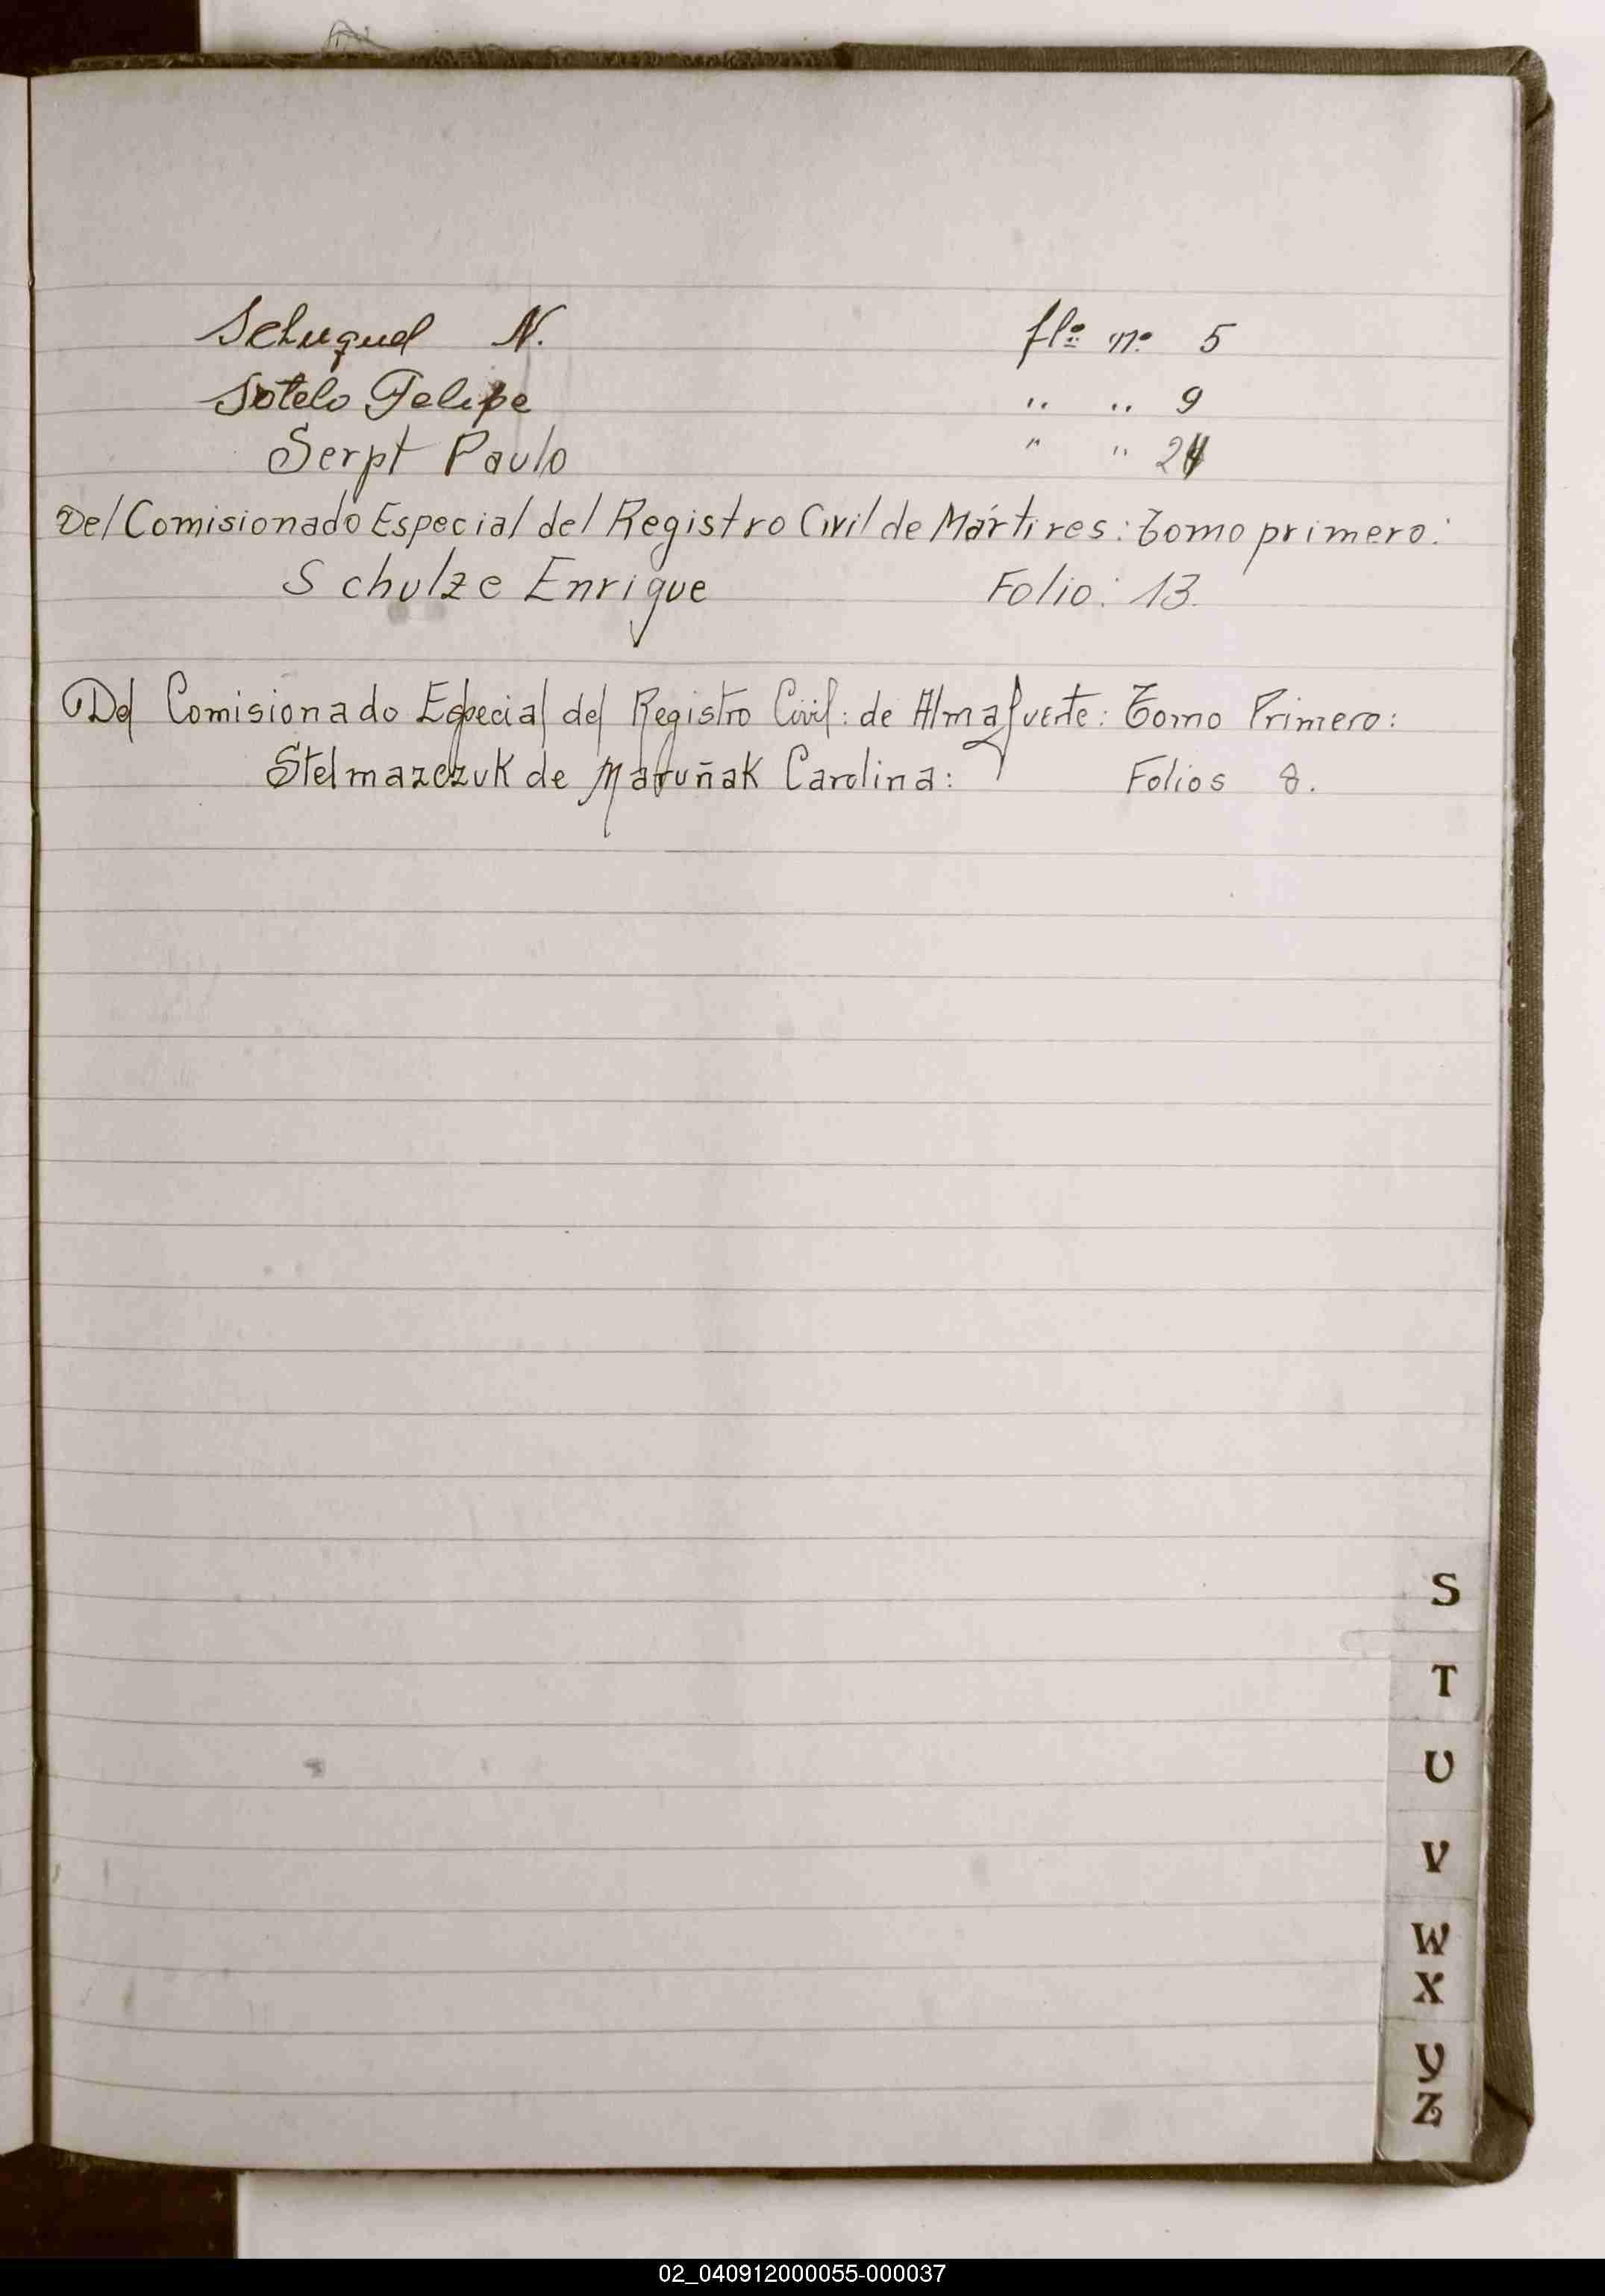 Schuquel N. flº nº 5
Sotelo Felipe " " 9
Serpt Paulo " " 24
Del Comisionado Especial del Registro Civil de Mártires: Tomo primero:
Schulze Enrique Folio: 13.
Del Comisionado Especial del Registro Civil: de Almafuerte: Tomo Primero:
Stelmazczuk de Maruñak Carolina: Folios 8.
S
T
U
V
W
X
Y
Z
02_040912000055-000037